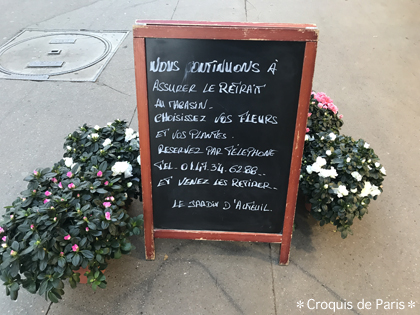 NOUS CONTINUONS À
ASSURER LE RETRAIT
AU MAGASIN.
CHOISISSEZ VOS FLEURS
ET VOS PLANTES.
RÉSERVEZ PAR TÉLÉPHONE
TEL. 01.47.34.62.88.
ET VENEZ LES RETIRER.
LE JARDIN D'AUTEUIL.
*Croquis de Paris*